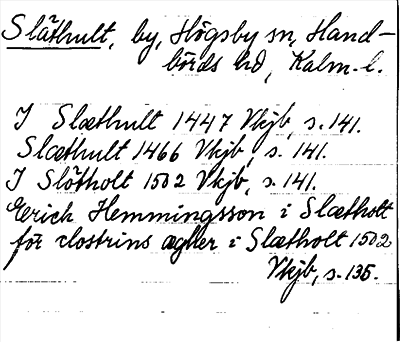 Släthult, by, Högsby sn, Hand-
börds hd, Kalm. l.
I Slæthult 1447 Vkjb, s. 141.
Slæthult 1466 Vkjb, s. 141.
I Slötholt 1502 Vkjb, s. 141.
Erich Hemmingsson i Slætholt
för clostrins ægher i Slætholt 1502
Vkjb, s. 135.